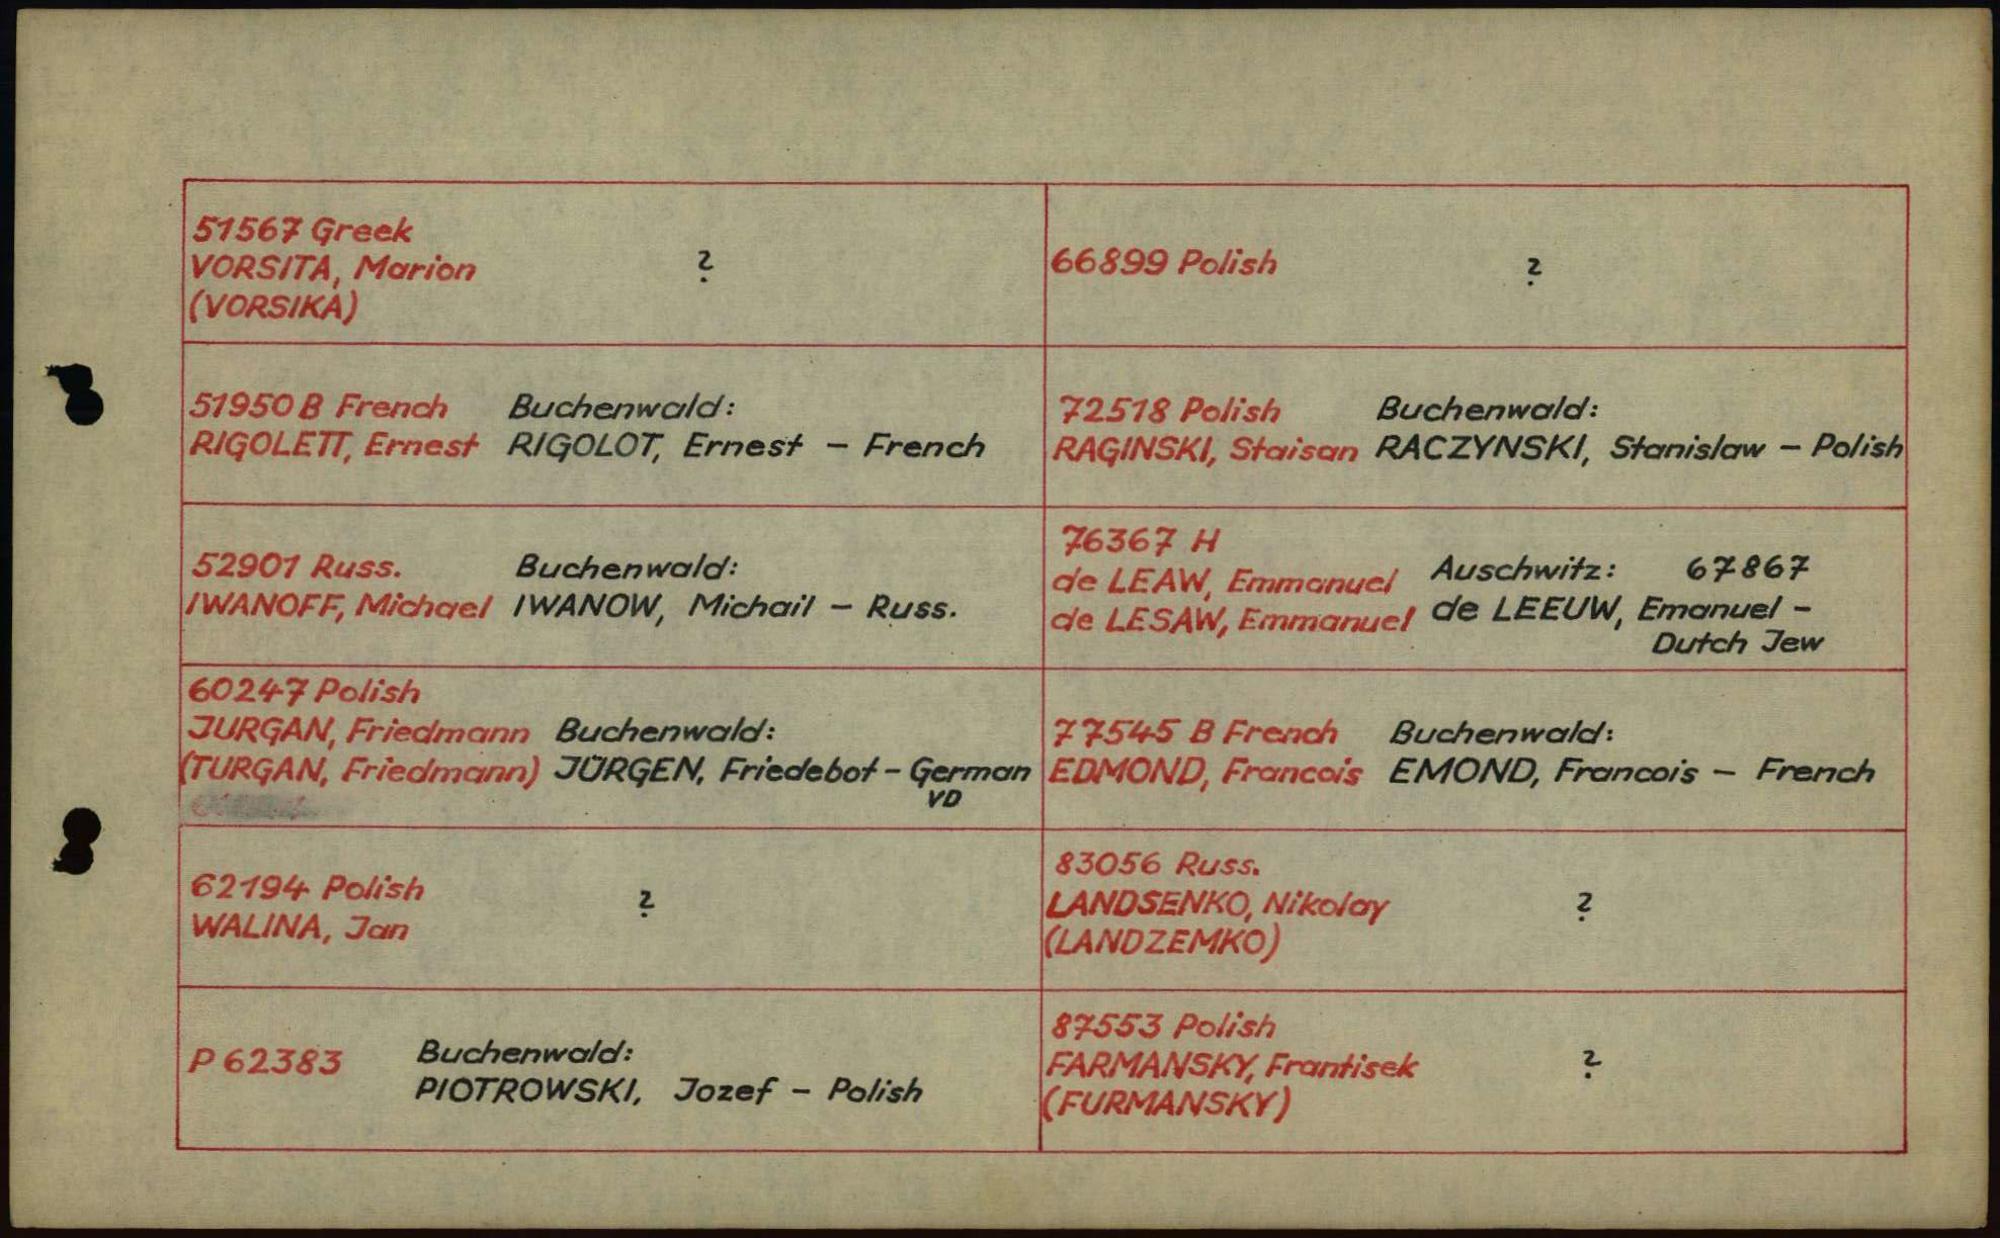 51567 Greek
VORSITA, Marion ?
(VORSIKA)
66899 Polish ?
51950 B French Buchenwald:
RIGOLETT, Ernest RIGOLOT, Ernest - French
72518 Polish Buchenwald:
RAGINSKI, Staisan RACZYNSKI, Stanislaw - Polish
52901 Russ. Buchenwald:
IWANOFF, Michael IWANOW, Michail - Russ.
76367 H
de LEAW, Emmanuel Auschwitz: 67867
de LESAW, Emmanuel de LEEUW, Emanuel -
Dutch Jew
60247 Polish
JURGAN, Friedmann Buchenwald:
(TURGAN, Friedmann) JÜRGEN, Friedebot - German
VD
77545 B French Buchenwald:
EDMOND, Francois EMOND, Francois - French
62194 Polish ?
WALINA, Jan
83056 Russ.
LANDSENKO, Nikolay ?
(LANDZEMKO)
P 62383 Buchenwald:
PIOTROWSKI, Jozef - Polish
87553 Polish
FARMANSKY, Frantisek ?
(FURMANSKY)